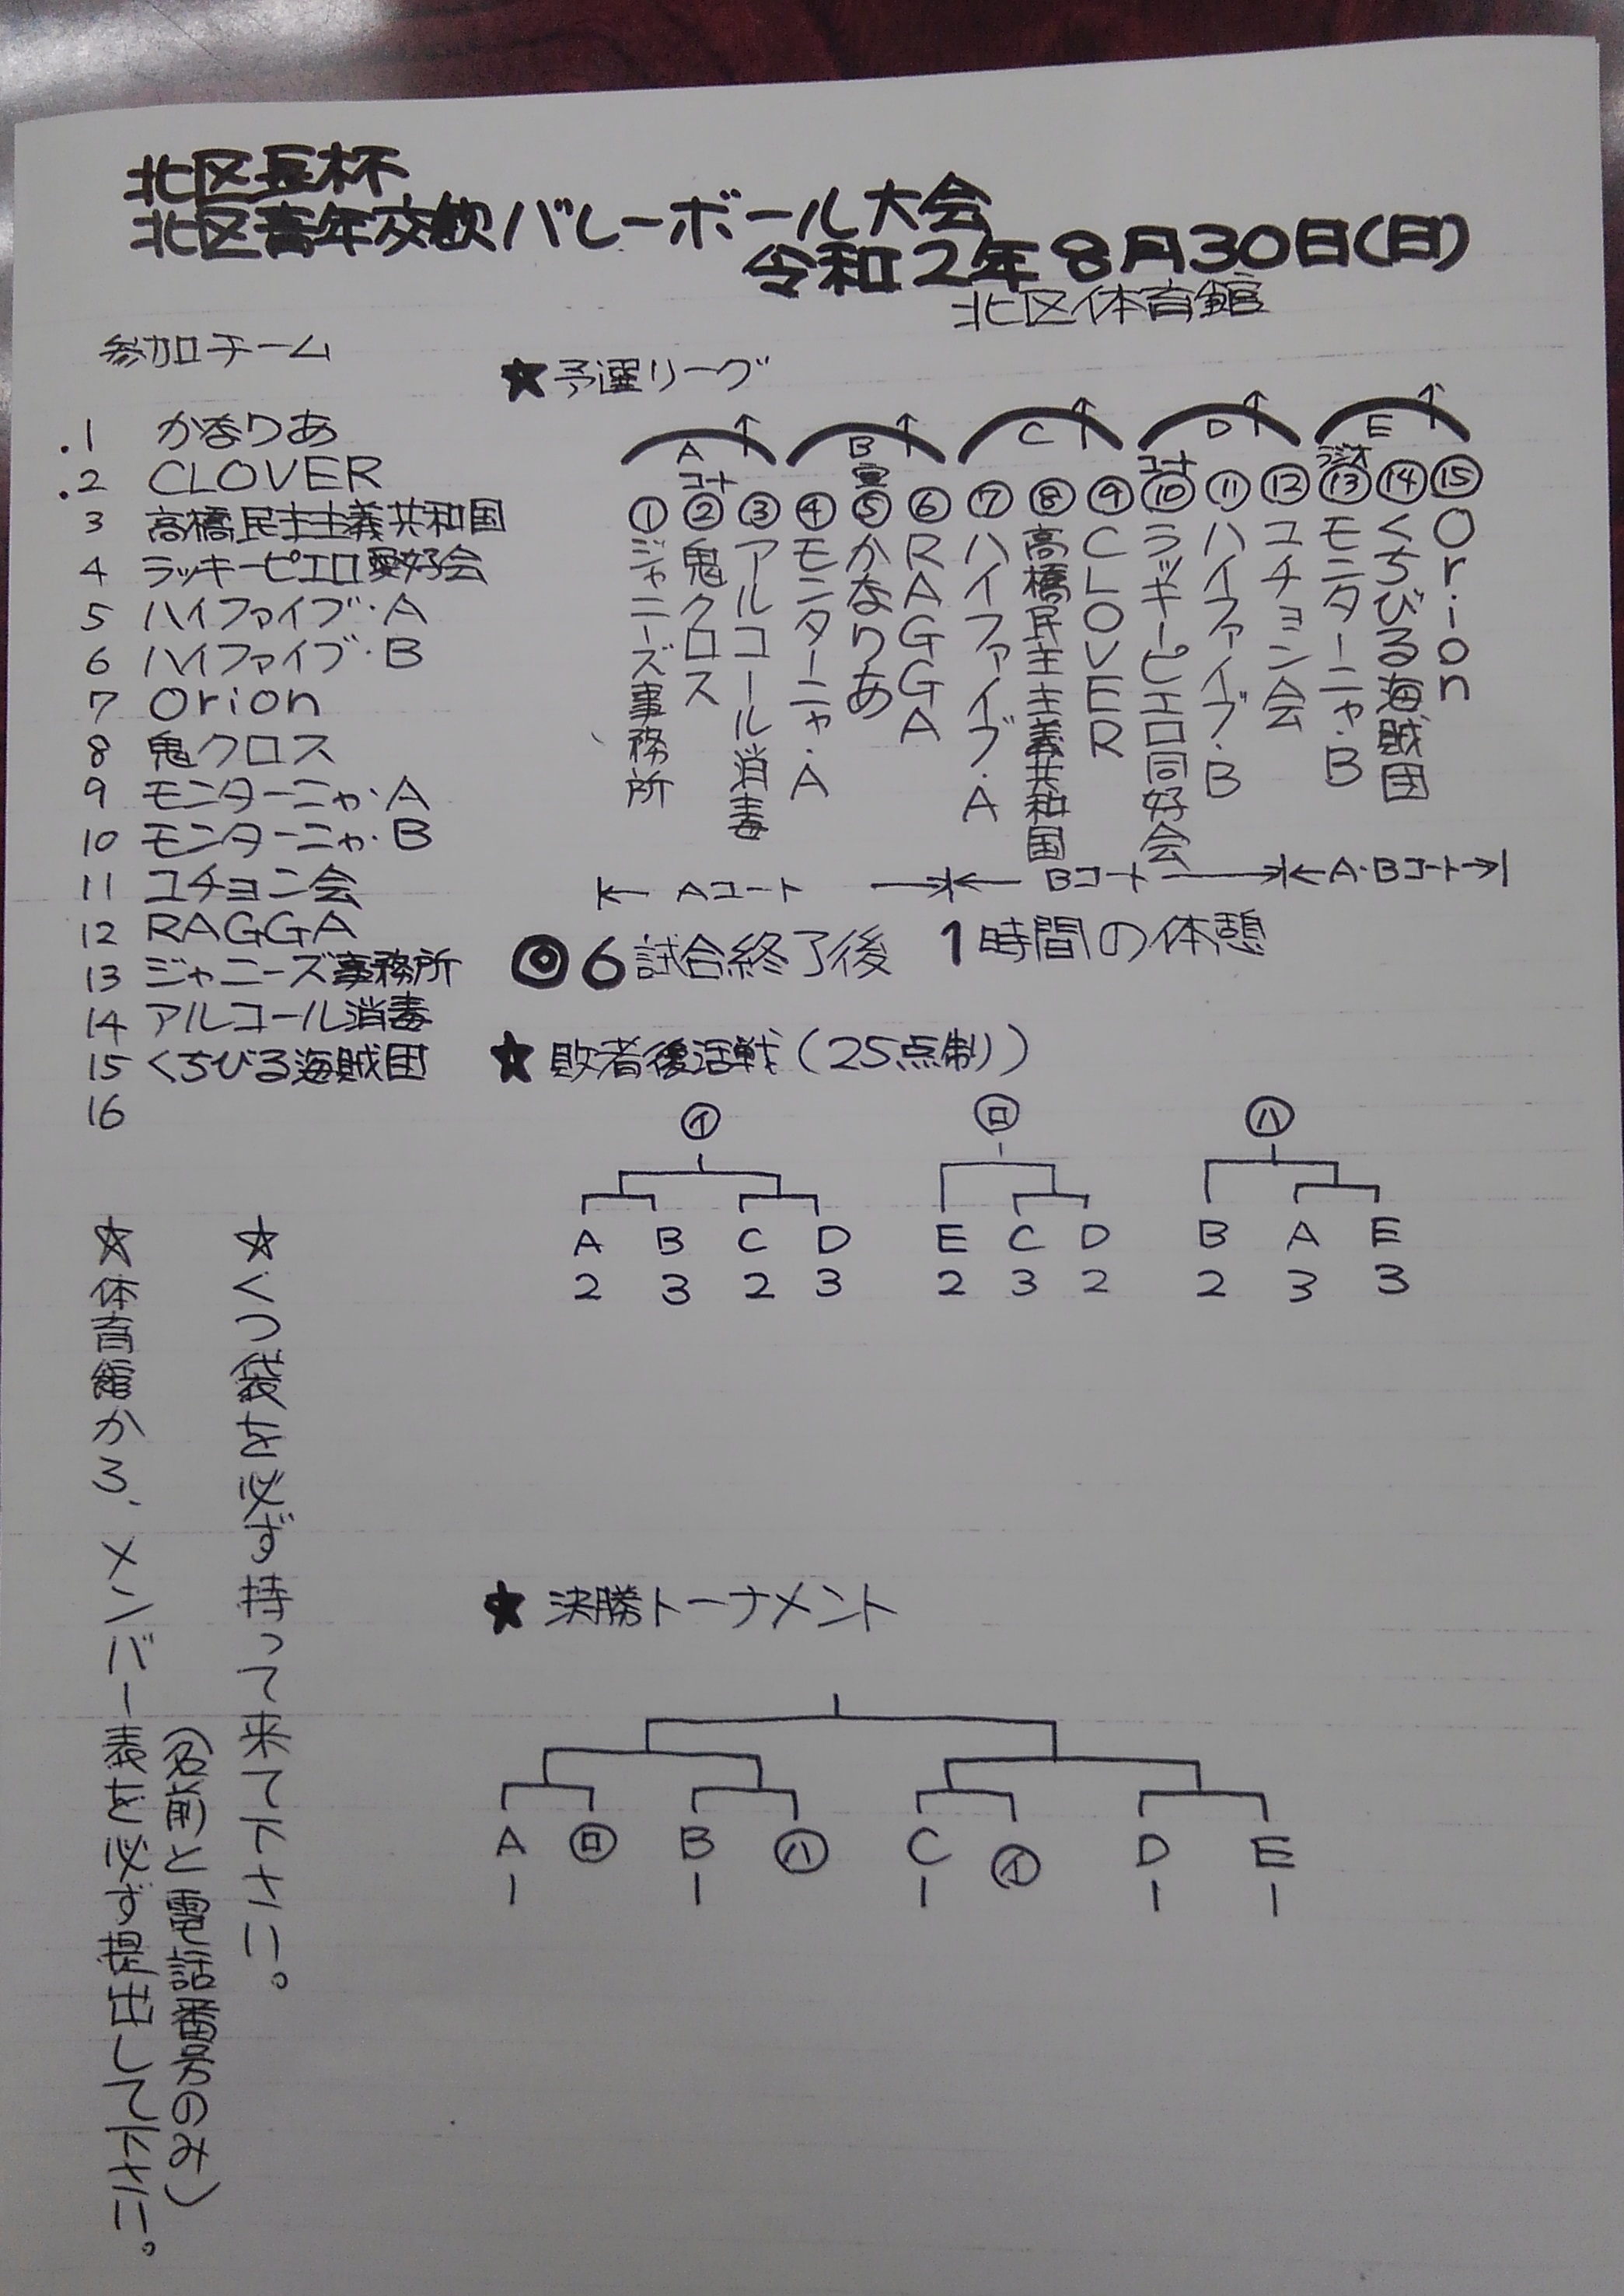 北区長杯
北区青年交歓バレーボール大会
令和2年8月30日(日)
北区体育館
参加チーム
1 かなりあ
2 CLOVER
3 高橋民主主義共和国
4 ラッキーピエロ愛好会
5 ハイファイブ・A
6 ハイファイブ・B
7 Orion
8 鬼クロス
9 モンターニャ・A
10 モンターニャ・B
11 ユチョン会
12 RAGGA
13 ジャニーズ事務所
14 アルコール消毒
15 くちびる海賊団
16
★予選リーグ
A B C D E
コート
コート
ラジオ
①ジャニーズ事務所
②鬼クロス
③アルコール消毒
④モンターニャ・A
⑤かなりあ
⑥RAGGA
⑦ハイファイブ・A
⑧高橋民主主義共和国
⑨CLOVER
⑩ラッキーピエロ同好会
⑪ハイファイブ・B
⑫ユチョン会
⑬モンターニャ・B
⑭くちびる海賊団
⑮Orion
Aコート Bコート A・Bコート
◎6試合終了後 1時間の休憩
★敗者後活戦(25点制)
イ ロ ハ
A B C D E C D B A E
2 3 2 3 2 3 2 2 3 3
★決勝トーナメント
A ロ B ハ C イ D E
1 1 1 1 1
☆くつ袋を必ず持って来て下さい。
☆体育館から、メンバー表を必ず提出して下さい。
(名前と電話番号のみ)